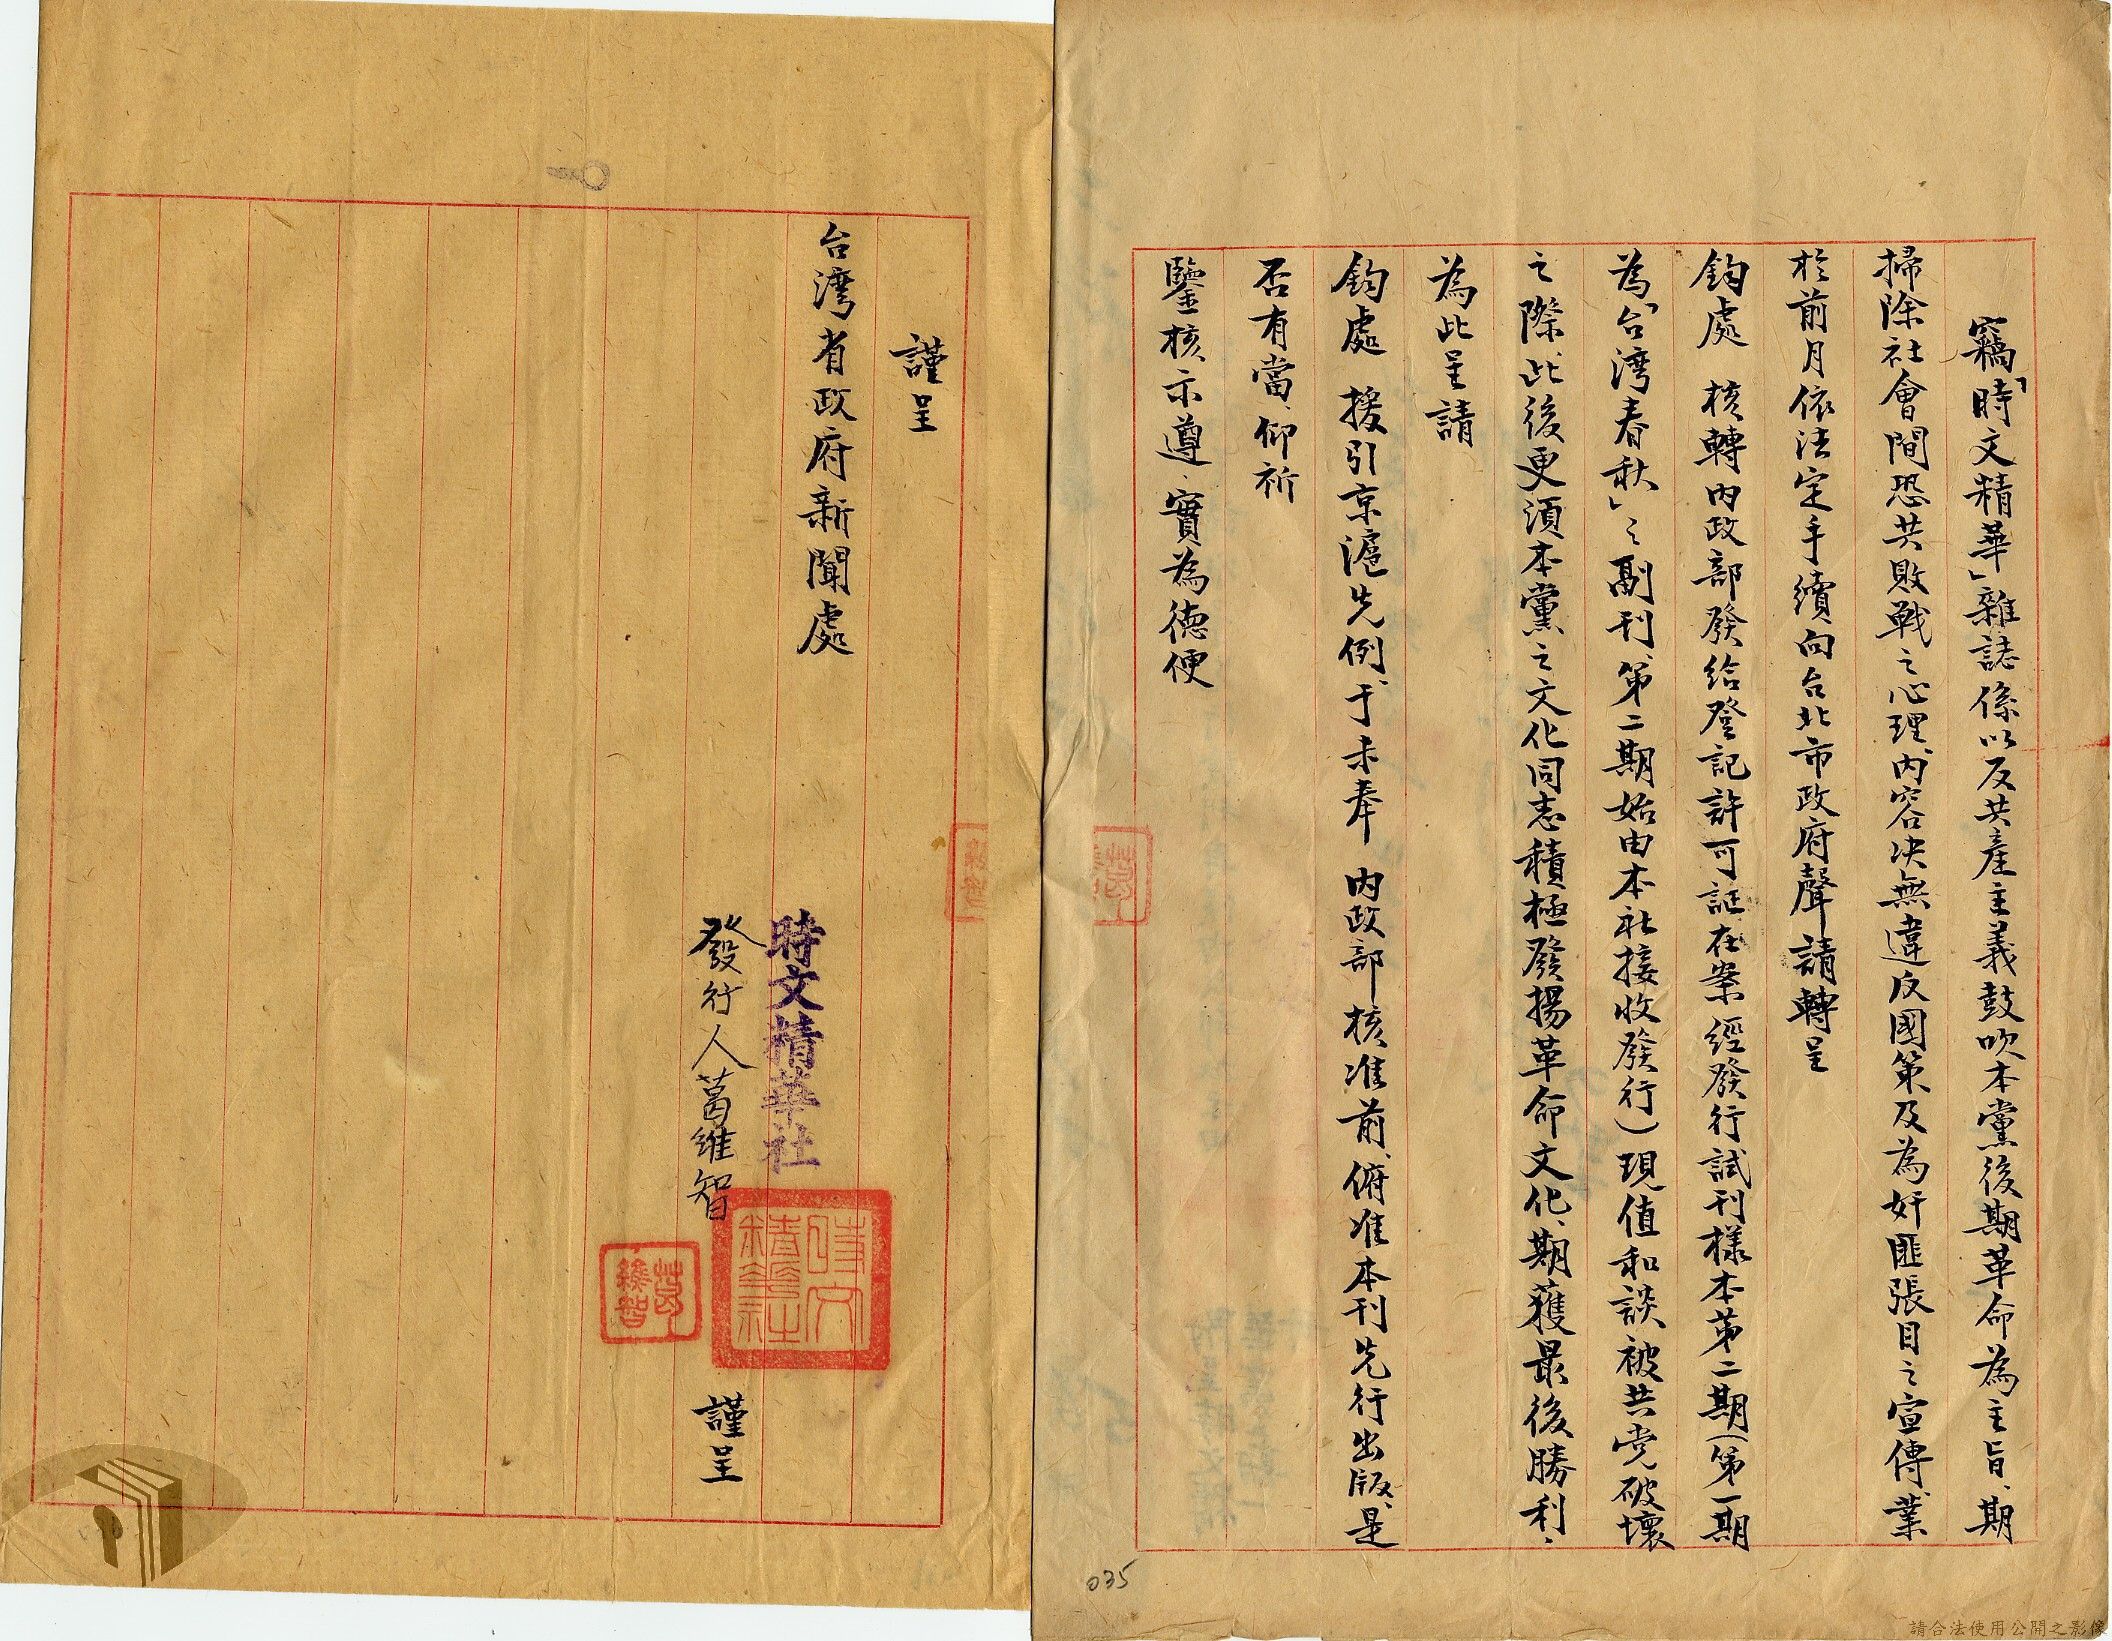 竊「時文精華」雜誌係以反共產主義鼓吹本黨後期革命為主旨、期
掃除社會間恐共敗戰之心理、內容决無違反國策及為奸匪張目之宣傳、業
於前月依法定手續向台北市政府聲請轉呈
鈞處　核轉內政部發給登記許可証在案　經發行試刊樣本第二期（第一期
為「台灣春秋」之副刊、第二期始由本社接收發行）現值和談被共党破壞
之際、此後更須本黨之文化同志積極發揚革命文化、期獲最後勝利、
為此呈請
鈞處　援引京滬先例、于未奉　內政部核准前、俯准本刊先行出版、是
否有當、仰祈
鑒核示遵、實為德便
謹呈
台灣省政府新聞處
時文精華社
發行人葛維智　謹呈
時文精華社
葛維智
葛維智
035
請合法使用公開之影像